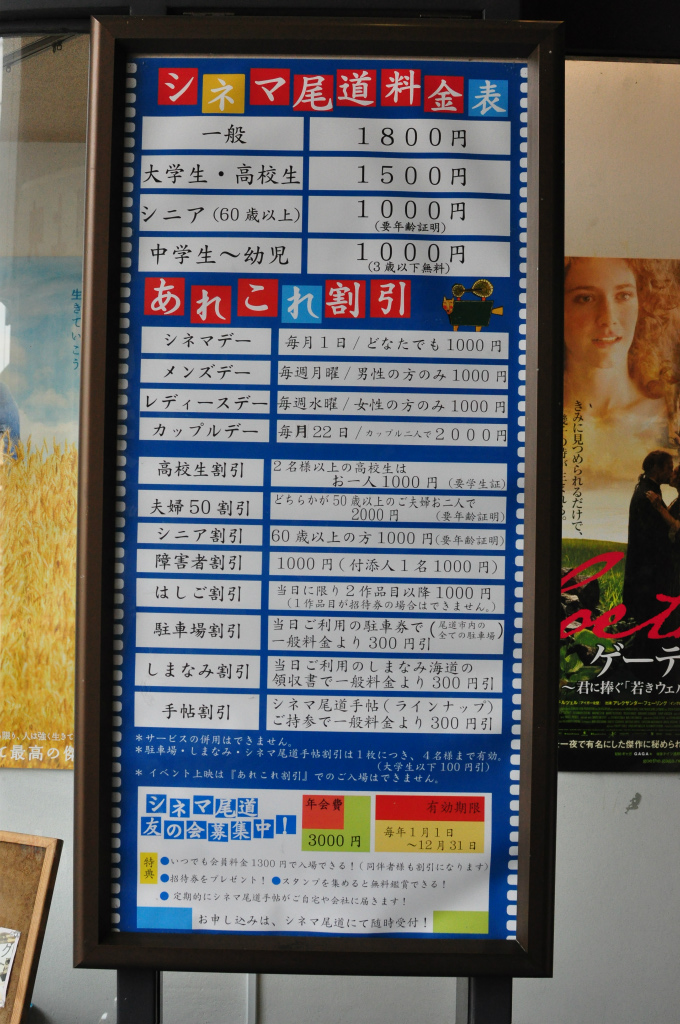 シネマ尾道料金表
一般 1800円
大学生・高校生 1500円
シニア(60歳以上) 1000円
(要年齢証明)
中学生～幼児 1000円
(3歳以下無料)
あれこれ割引
シネマデー 毎月1日/どなたでも1000円
メンズデー 毎週月曜/男性の方のみ1000円
レディースデー 毎週水曜/女性の方のみ1000円
カップルデー 毎月22日/カップル二人で2000円
高校生割引 2名様以上の高校生は
お一人1000円 (要学生証)
夫婦50割引 どちらかが50歳以上のご夫婦お二人で
2000円 (要年齢証明)
シニア割引 60歳以上の方1000円(要年齢証明)
障害者割引 1000円(付添人1名1000円)
はしご割引 当日に限り2作品目以降1000円
(1作品目が招待券の場合はできません。)
駐車場割引 当日ご利用の駐車券で(尾道市内の全ての駐車場)
一般料金より300円引
しまなみ割引 当日ご利用のしまなみ海道の
領収書で一般料金より300円引
手帖割引 シネマ尾道手帖(ラインナップ)
ご持参で一般料金より300円引
*サービスの併用はできません。
*駐車場・しまなみ・シネマ尾道手帖割引は1枚につき、4名様まで有効。
(大学生以下100円引)
* イベント上映は『あれこれ割引』でのご入場はできません。
シネマ尾道
友の会募集中!
年会費
3000円
有効期限
毎年1月1日
～12月31日
特典
●いつでも会員料金1300円で入場できる!(同伴者様も割引になります)
●招待券をプレゼント! ●スタンプを集めると無料鑑賞できる!
● 定期的にシネマ尾道手帖がご自宅や会社に届きます!
お申し込みは、シネマ尾道にて随時受付!
生きていこう
きみに見つめられるだけで、
ゲーテ
～君に捧ぐ「若きウェル
一夜で有名にした傑作に秘められ
て最高の傑